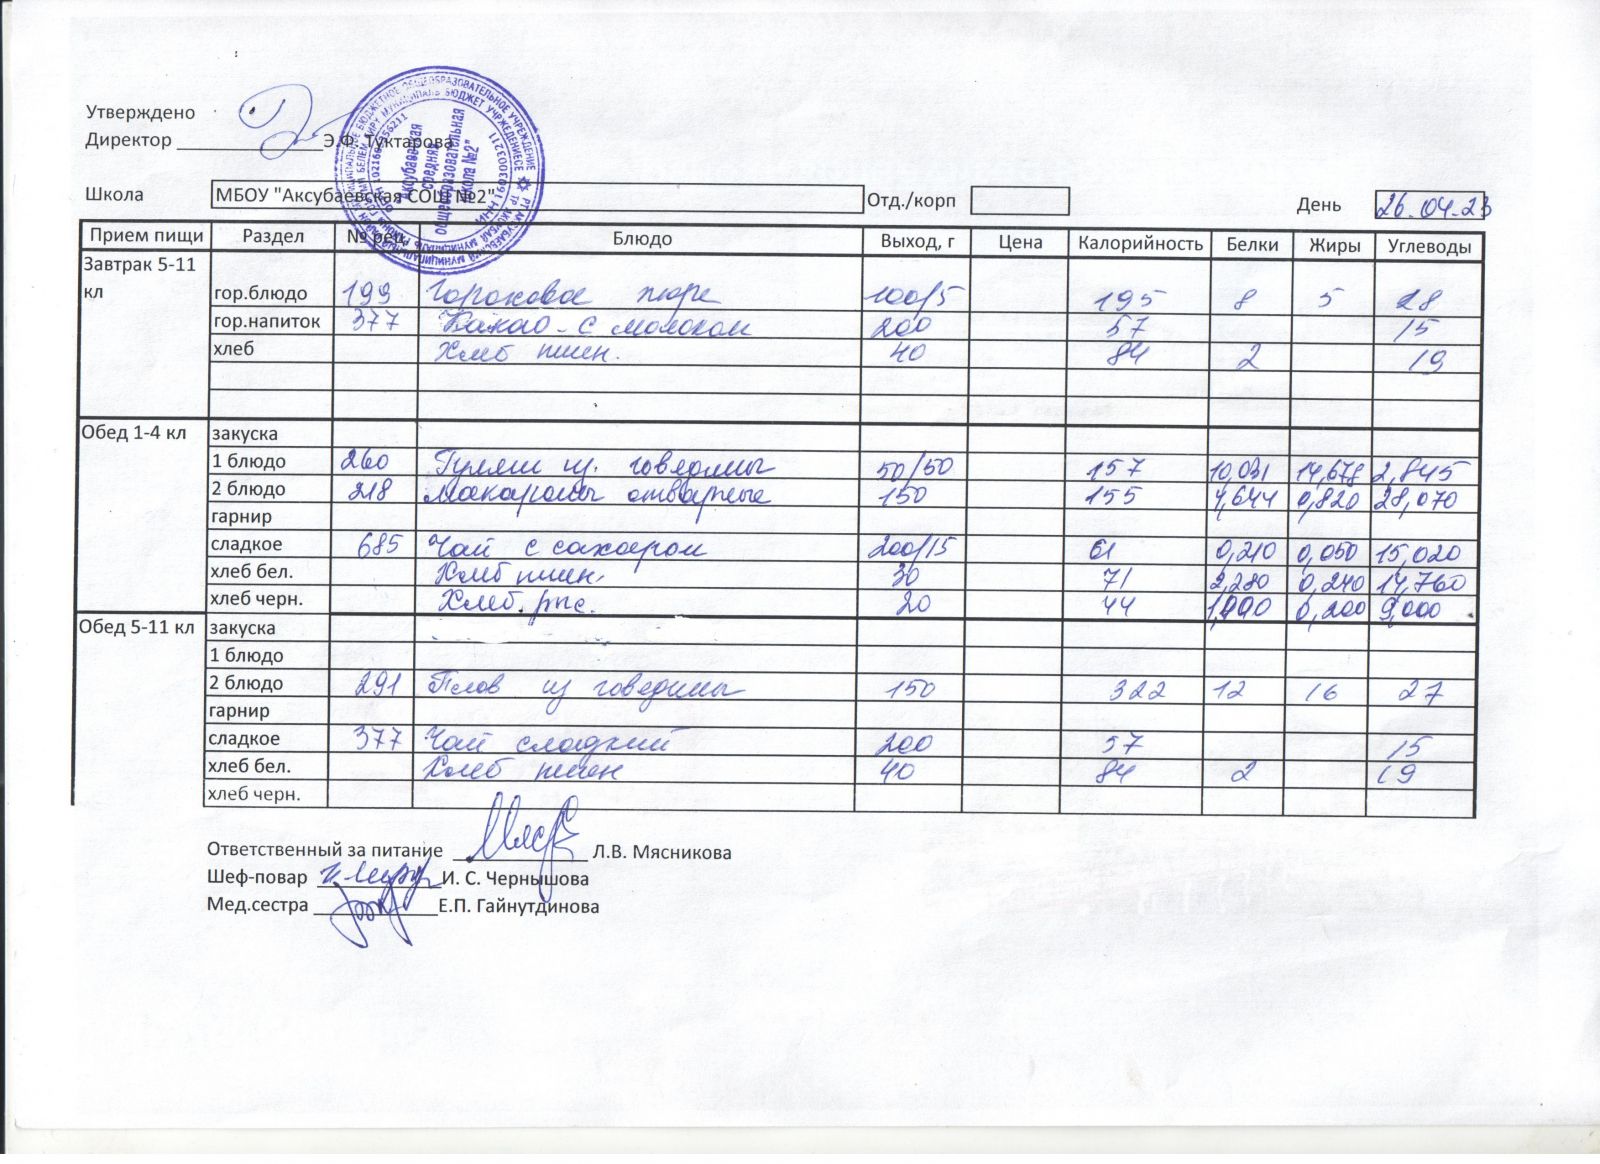 Утверждено
Директор Э.Ф. Туктарова
Школа МБОУ "Аксубаевская СОШ №2" Отд./корп День 26.04.23
Прием пищи Раздел № рец. Блюдо Выход, г Цена Калорийность Белки Жиры Углеводы
Завтрак 5-11
кл гор.блюдо 199 Гороховое пюре 100/5 195 8 5 28
гор.напиток 377 Какао с молоком 200 57 15
хлеб Хлеб пшен. 40 84 2 19
Обед 1-4 кл закуска
1 блюдо 260 Гуляш из говядины 50/50 157 10,031 14,678 2,845
2 блюдо 218 Макароны отварные 150 155 4,644 0,820 28,070
гарнир
сладкое 685 Чай с сахаром 200/15 61 0,210 0,050 15,020
хлеб бел. Хлеб пшен. 30 71 2,280 0,240 14,760
хлеб черн. Хлеб. рж. 20 44 0,200 9,000
Обед 5-11 кл закуска
1 блюдо
2 блюдо 291 Плов из говядины 150 322 12 16 27
гарнир
сладкое 377 Чай сладкий 200 57 15
хлеб бел. Хлеб пшен 40 84 2 19
хлеб черн.
Ответственный за питание Л.В. Мясникова
Шеф-повар И. С. Чернышова
Мед.сестра Е.П. Гайнутдинова
Аксубаевская
средняя
общеобразовательная
школа №2"